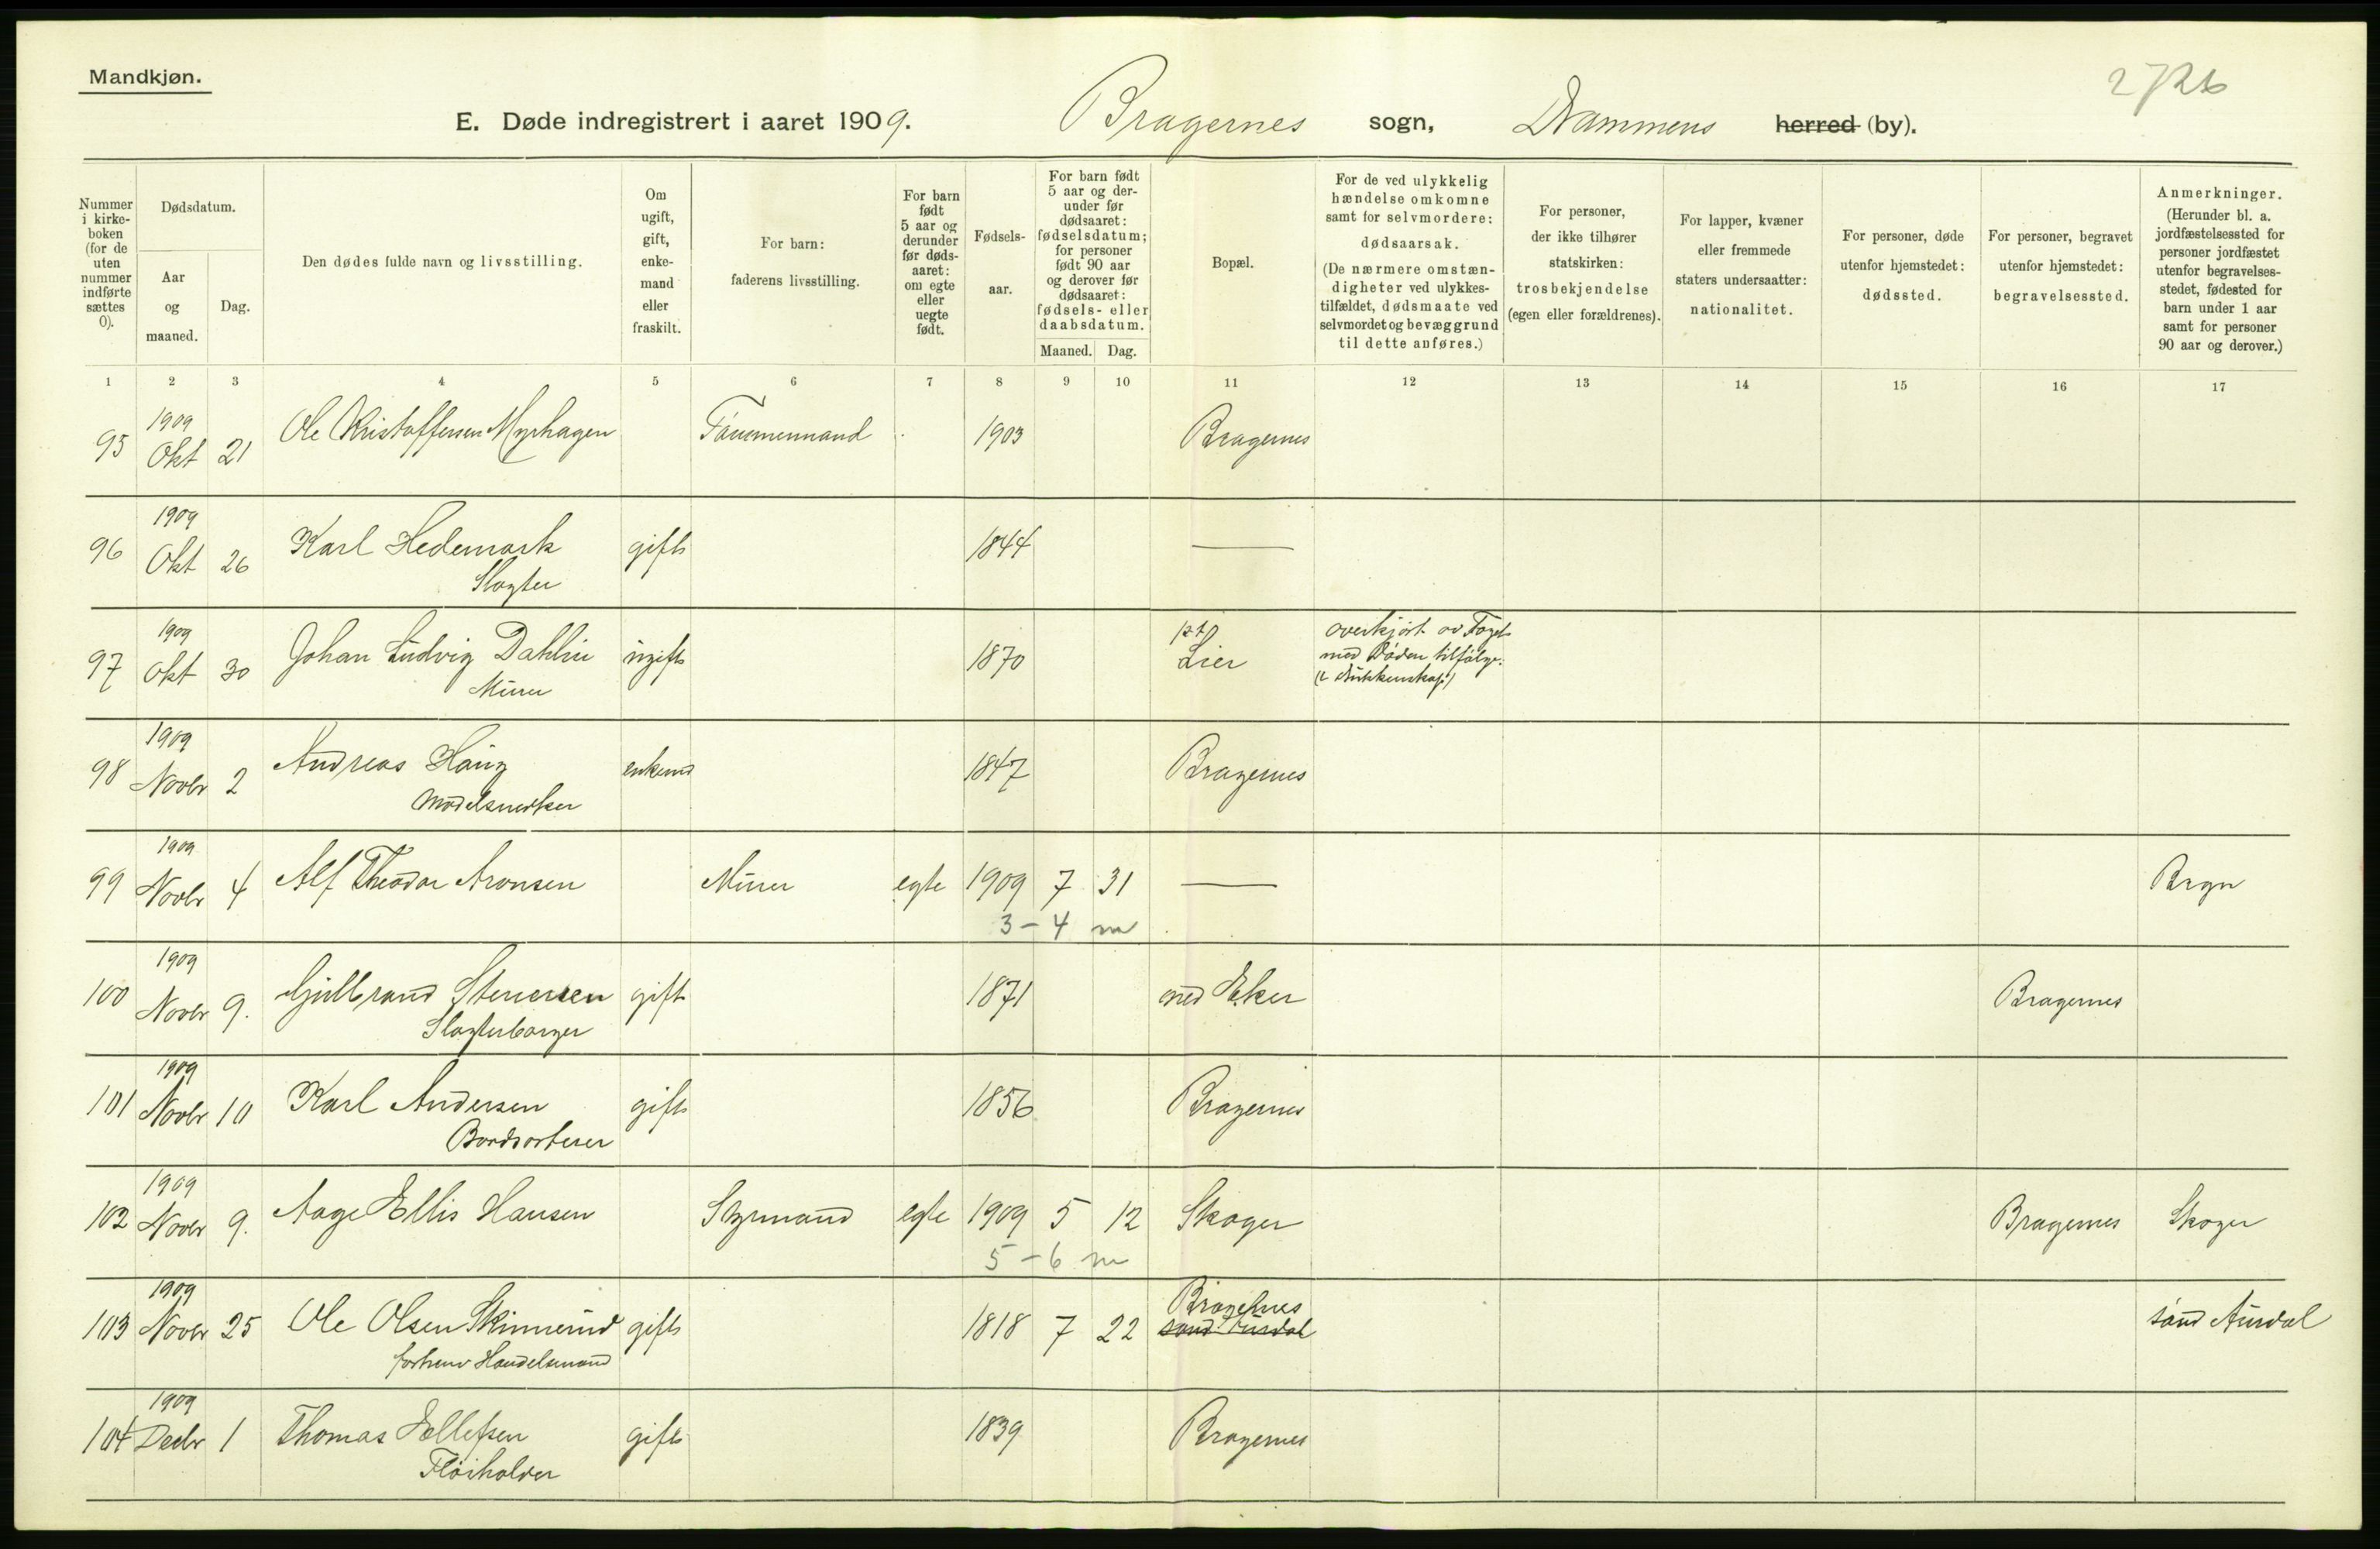 Mandkjøn.
2726
E. Døde indregistrert i aaret 1909. Bragernes sogn, Drammens herred (by).
Nummer i kirke-boken (for de uten nummer indførte sættes 0).
Dødsdatum.
Aar og maaned.
Dag.
Den dødes fulde navn og livsstilling.
Om ugift, gift, enke-mand eller fraskilt.
For barn: faderens livsstilling.
For barn født 5 aar og derunder før døds-aaret: om egte eller uegte født.
Fødsels-aar.
For barn født 5 aar og der-under før dødsaaret: fødselsdatum; for personer født 90 aar og derover før dødsaaret: fødsels- eller daabsdatum.
Maaned. Dag.
Bopæl.
For de ved ulykkelig hændelse omkomne samt for selvmordere: dødsaarsak. (De nærmere omstæn-digheter ved ulykkes-tilfældet, dødsmaate ved selvmordet og bevæggrund til dette anføres.)
For personer, der ikke tilhører statskirken: trosbekjendelse (egen eller forældrenes).
For lapper, kvæner eller fremmede staters undersaatter: nationalitet.
For personer, døde utenfor hjemstedet: dødssted.
For personer, begravet utenfor hjemstedet: begravelsessted.
Anmerkninger. (Herunder bl. a. jordfæstelsessted for personer jordfæstet utenfor begravelses-stedet, fødested for barn under 1 aar samt for personer 90 aar og derover.)
1 2 3 4 5 6 7 8 9 10 11 12 13 14 15 16 17
1909
95 Okt 21 Ole Kristoffersen Myrhagen Tømmermand 1903 Bragernes
1909
96 Okt 26 Karl Hedemark gift 1844 —
Slagter
1909
97 Okt 30 Johan Ludvig Dahlin ugift 1870 p.t. Lier overkjørt av Toget
med Døden tilfølge.
Murer (i Drukkenskap)
1909
98 Novbr 2 Andreas Haug enkemd 1847 Bragernes
Modelsnedker
1909
99 Novbr 4 Alf Theodor Aronsen Murer egte 1909 7 31 — Brgn
3 - 4 m
1909
100 Novbr 9. Gulbrand Stenersen gift 1871 ned Eker Bragernes
Slagterborger
1909
101 Novbr 10 Karl Andersen gift 1856 Bragernes
Bordsorterer
1909
102 Novbr 9. Aage Ellis Hansen Styrmand egte 1909 5 12 Skoger Bragernes Skoger
5 - 6 m
1909 Bragernes
103 Novbr 25 Ole Olsen Skinnerud gift 1818 7 22 sønd Aurdal sønd Aurdal
forhenv Handelsmand
1909
104 Decbr 1 Thomas Ellefsen gift 1839 Bragernes
Fløiholder